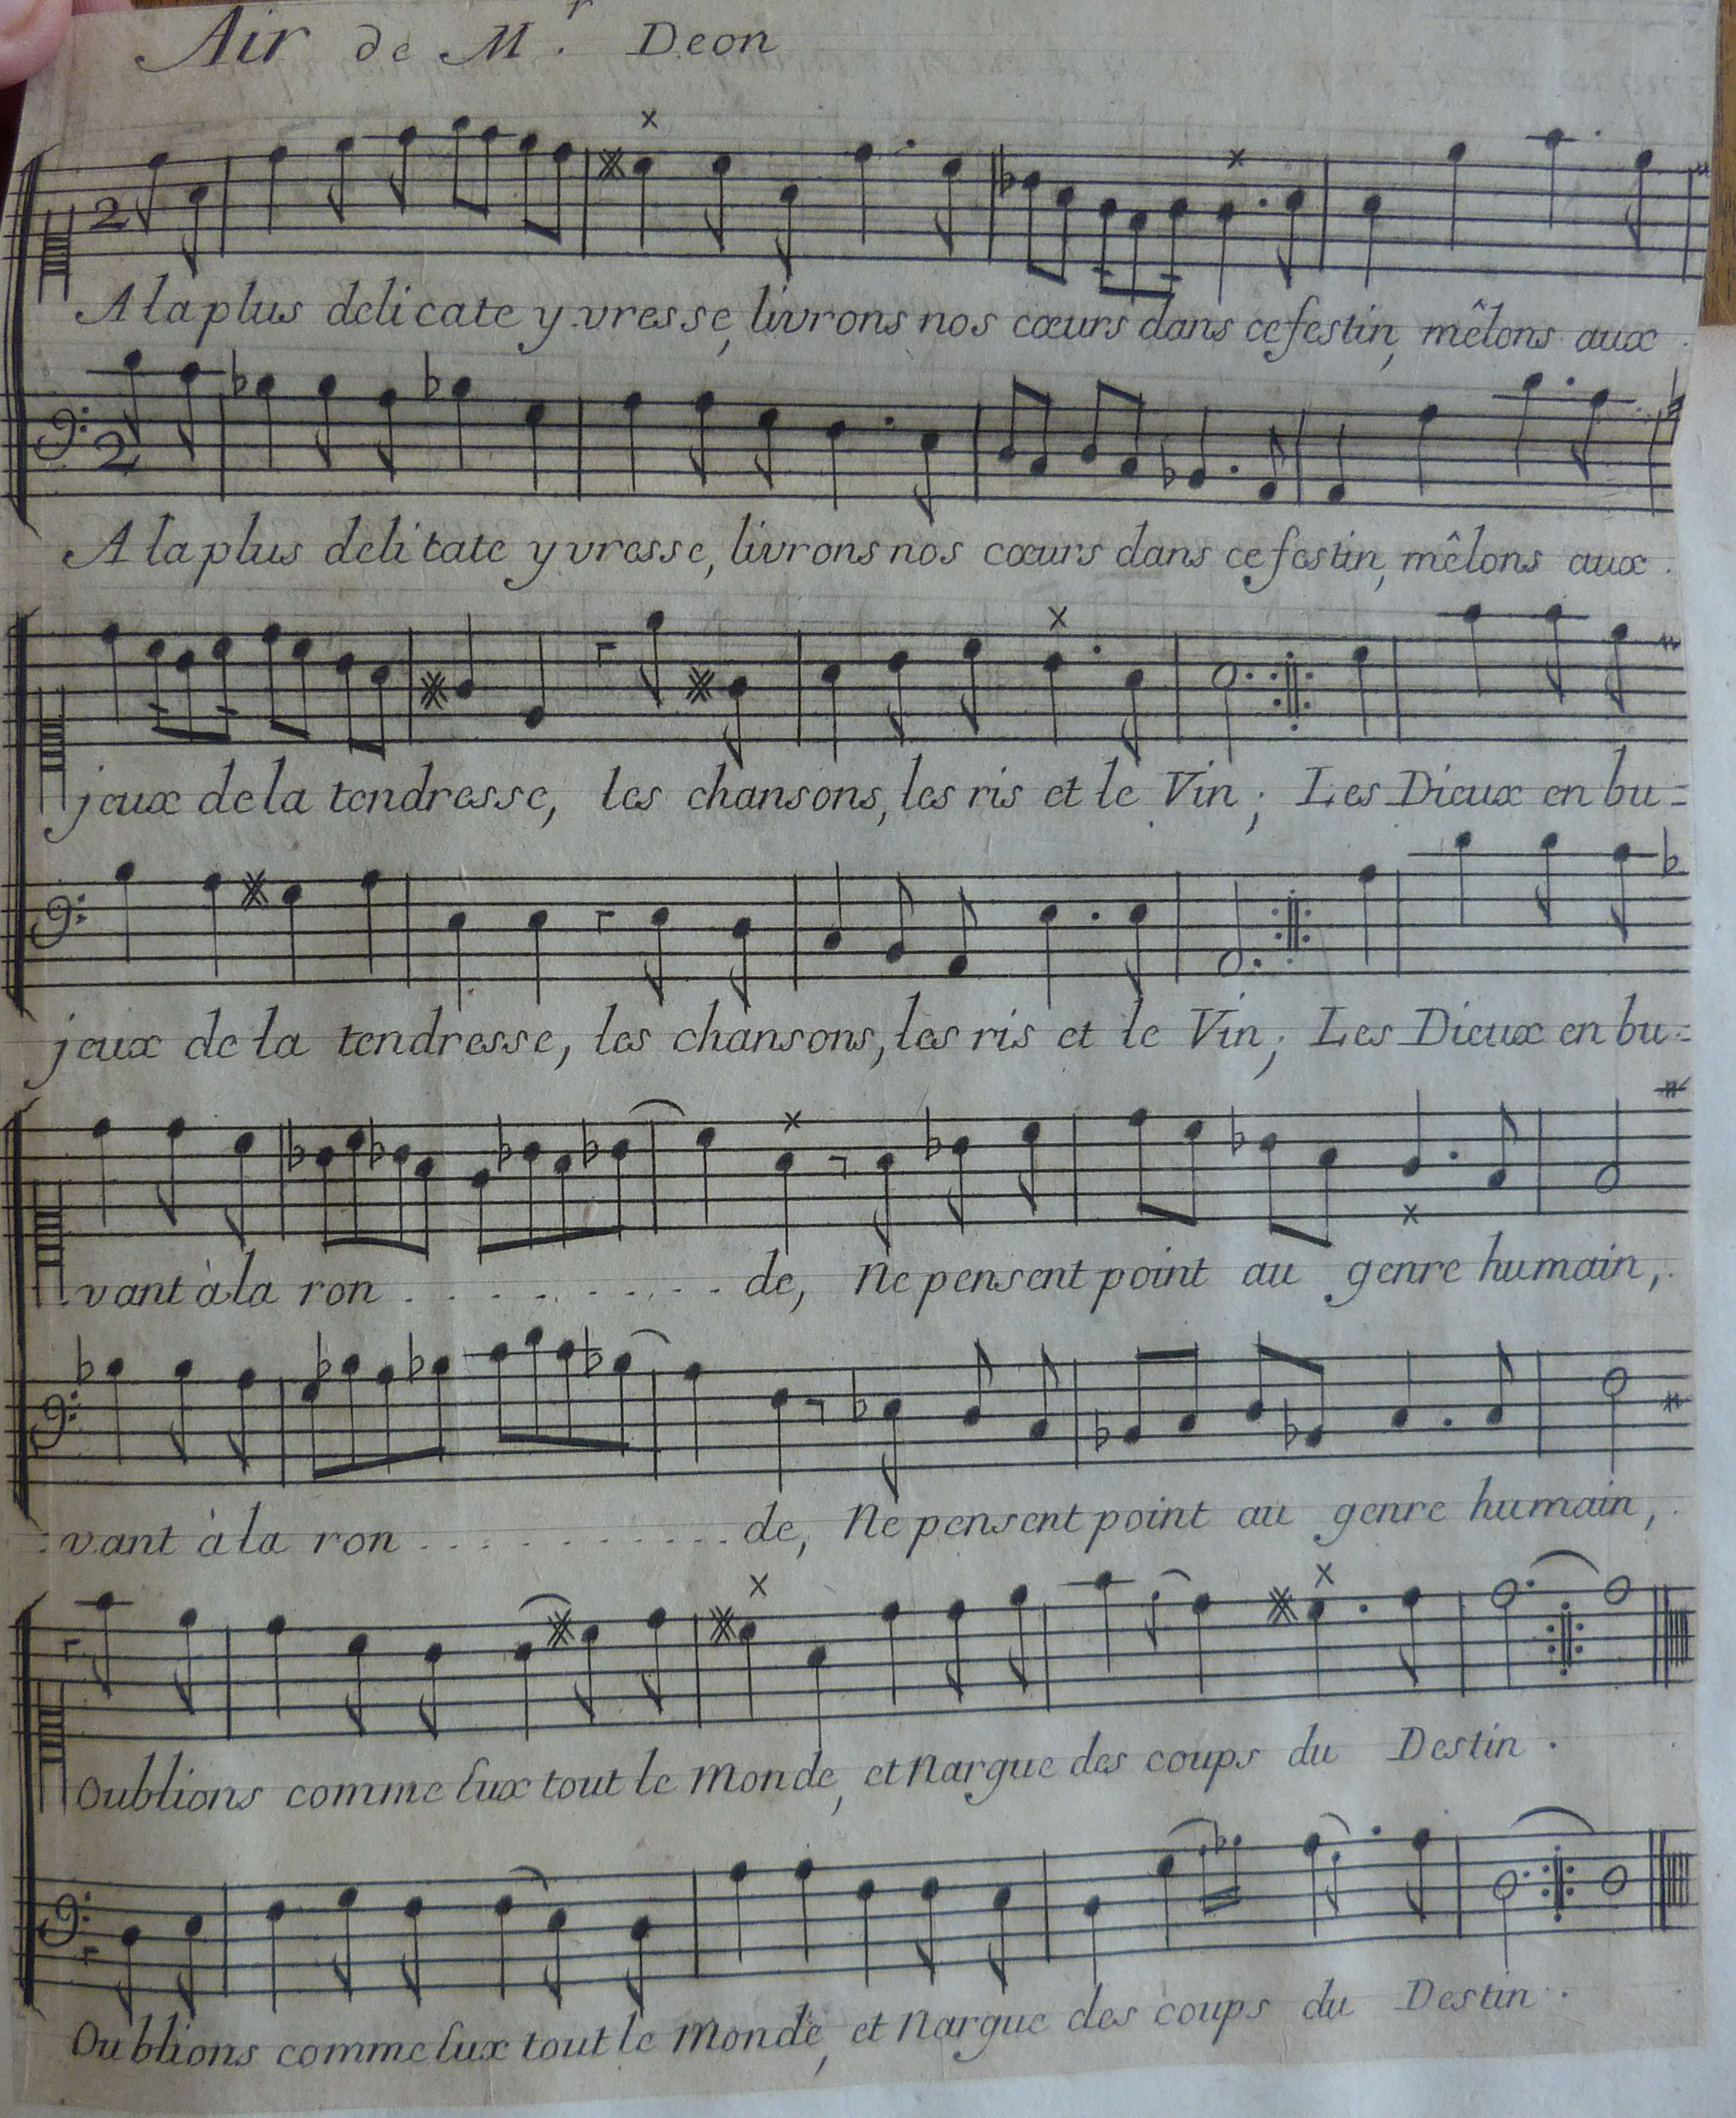 Air de Mr. Deon
A la plus delicate yvresse, livrons nos cœurs dans ce festin, mêlons aux
A la plus delitate yvresse, livrons nos cœurs dans ce festin, mêlons aux
jeux de la tendresse, les chansons, les ris et le Vin; Les Dieux en bu=
jeux de la tendresse, les chansons, les ris et le Vin; Les Dieux en bu=
vant à la ron . . . . . . . . . de, Ne pensent point au genre humain,
vant à la ron . . . . . . . . . . . de, Ne pensent point au genre humain,
Oublions comme Eux tout le Monde, et Nargue des coups du Destin.
Oublions comme Eux tout le Monde, et Nargue des coups du Destin.